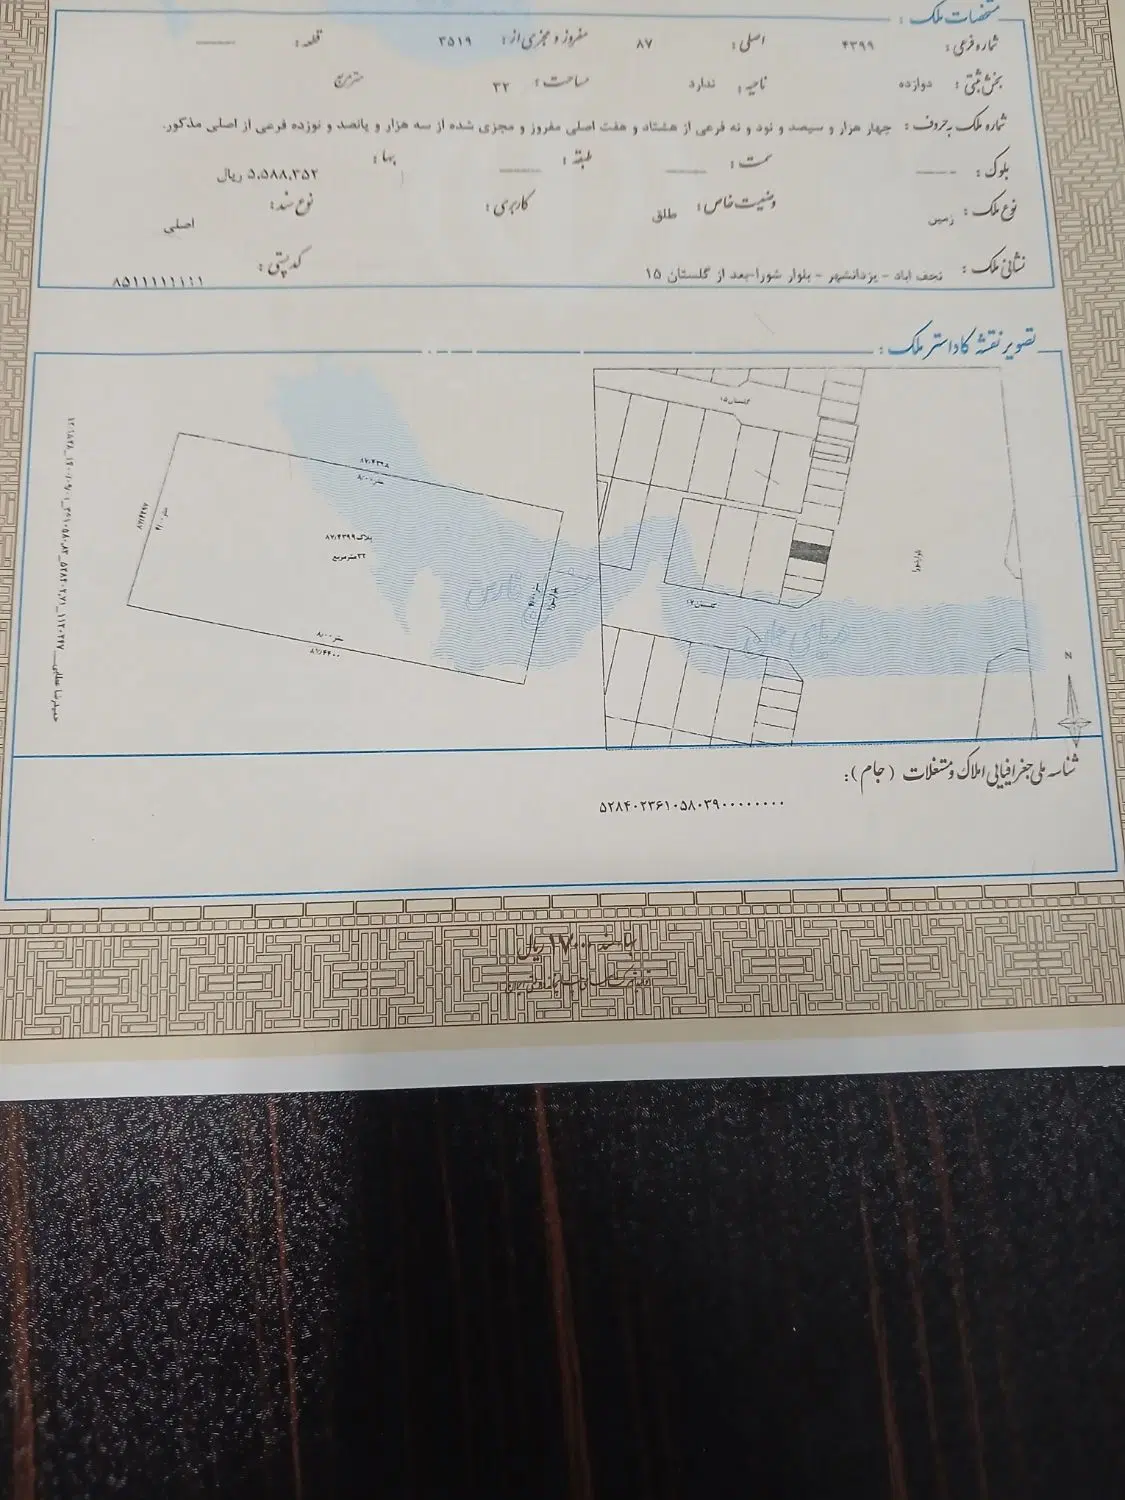 مشخصات ملک :
شماره فرعی : ۴۳۹۹ اصلی : ۸۷ مفروز و مجزی از : ۳۵۱۹ قطعه :
بخش ثبتی : دوازده ناحیه : ندارد مساحت : ۳۲ مترمربع
شماره ملک به حروف : چهار هزار و سیصد و نود و نه فرعی از هشتاد و هفت اصلی مفروز و مجزی شده از سه هزار و پانصد و نوزده فرعی از اصلی مذکور.
بلوک : سمت : طبقه : بها : ۵,۵۸۸,۳۵۲ ریال
نوع ملک : زمین وضعیت خاص : طلق کاربری : نوع سند : اصلی
نشانی ملک : نجف اباد - یزدانشهر - بلوار شورا-بعد از گلستان ۱۵ کدپستی : ۸۵۱۱۱۱۱۱۱۱
تصویر نقشه کاداستر ملک :
گلستان ۱۵
۸۷/۴۳۹۸
۸/۰۰ متر
۸۷/۴۴۹۷
۴/۰۰ متر
پلاک ۸۷/۴۳۹۹
۳۲ مترمربع
بلوار شورا
گلستان ۱۷
خلیج فارس
دریای عمان
۸/۰۰ متر
۸۷/۴۴۰۰
N
شناسه ملی جغرافیایی املاک و مستغلات ( جام ) :
۵۲۸۴۰۲۳۶۱۰۵۸۰۳۹۰۰۰۰۰۰۰۰